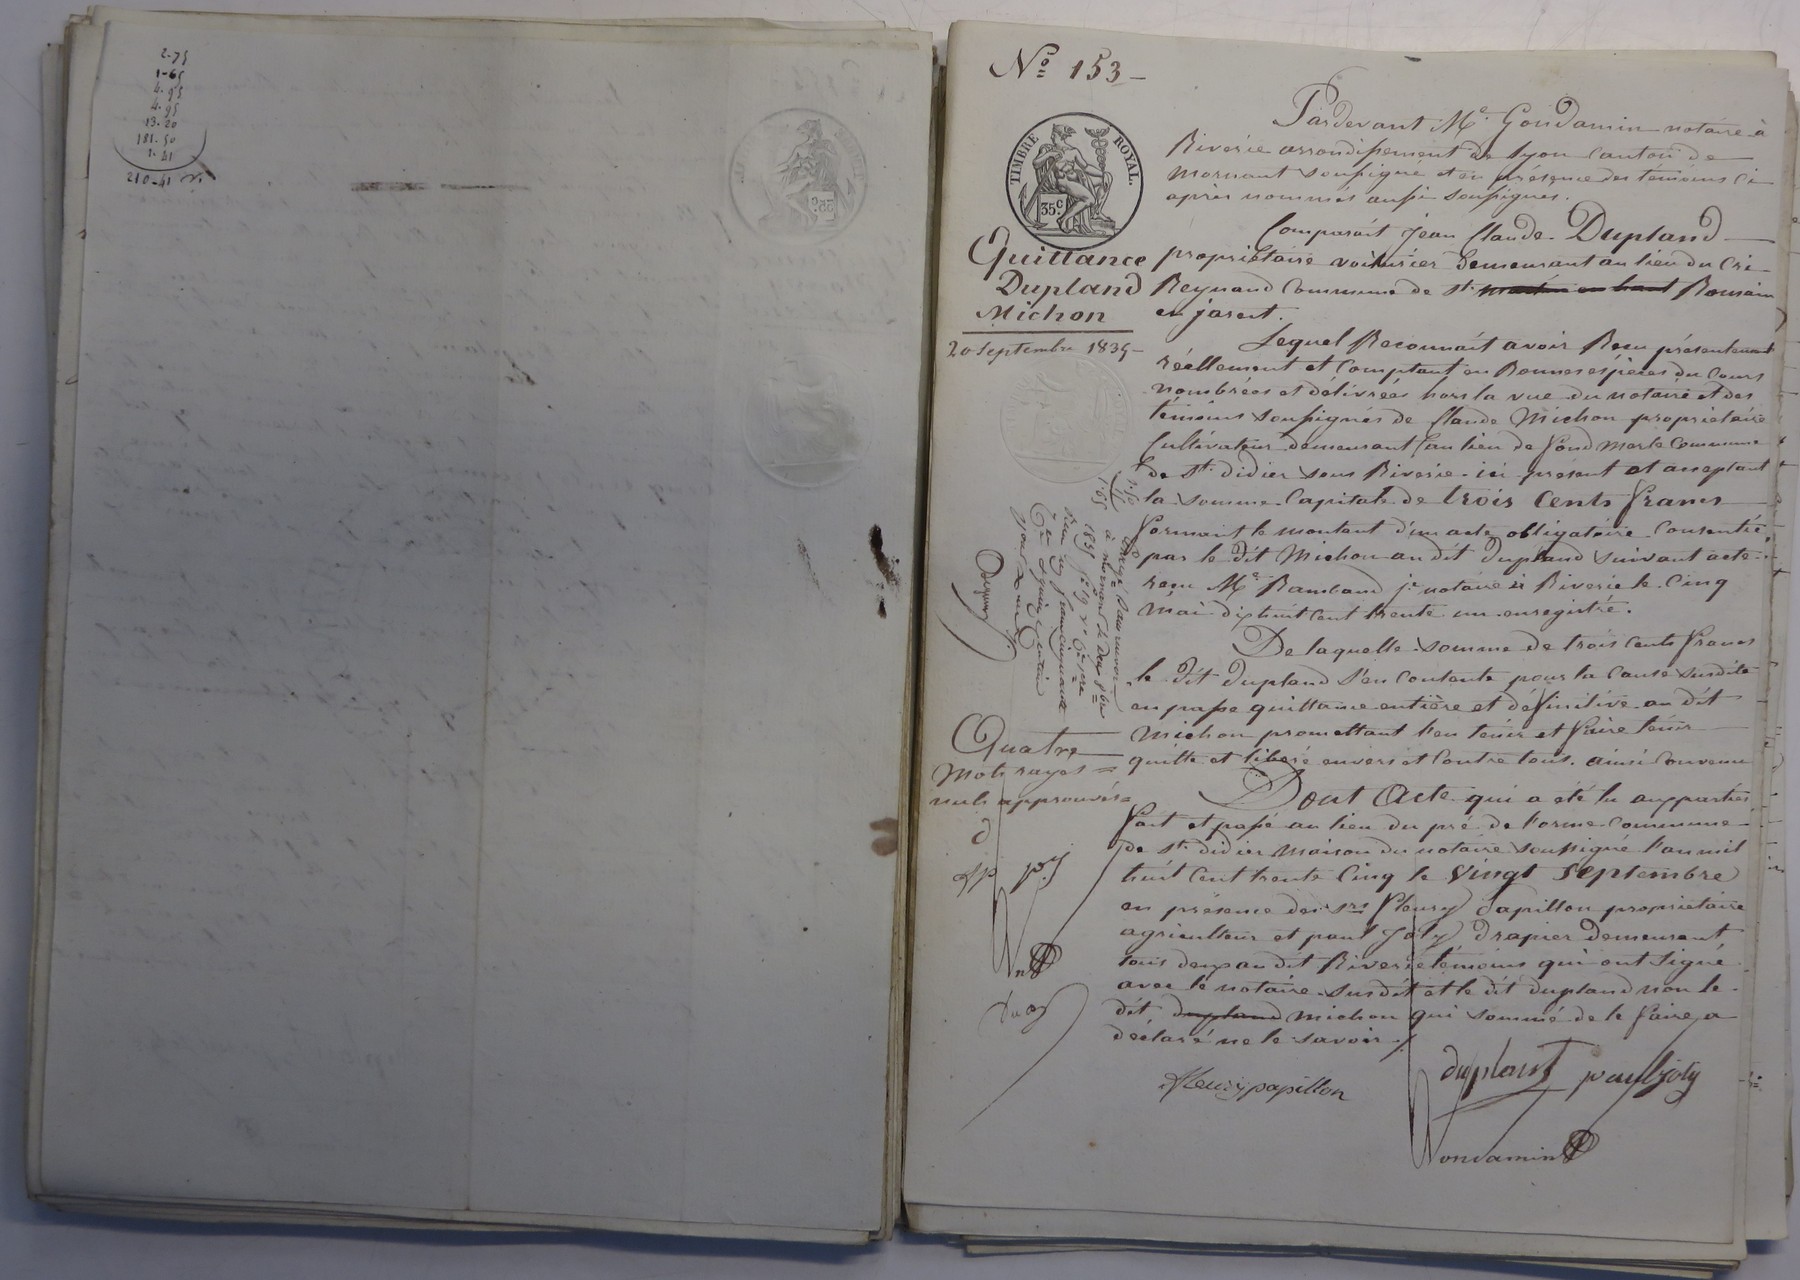 2-75
1-65
4.95
4.95
13.20
181.50
1.41
210-41
Nº 153 –
TIMBRE ROYAL.
35.c
Quittance
Dupland
Michon
20 septembre 1835 –
Pardevant Me. Gondamin notaire à
Riverie arrondissement de Lyon Canton de
Mornant soussigné et en présence des témoins ci
après nommés aussi soussignés.
Comparait Jean Claude Dupland
propriétaire voiturier demeurant au lieu du Cré
Reynaud Commune de St. martin en haut Romain
en jarest.
Lequel Reconnaît avoir Recu présentement
réellement et Comptant en Bonnes espèces du Cours
nombrées et délivrées hors la vue du notaire et des
témoins soussignés de Claude Michon propriétaire
Cultivateur demeurant au lieu de Fond Merle Commune
de St. didier sous Riverie ici présent et acceptant
la somme Capitale de trois Cents Francs
Formant le montant d'un acte obligatoire Consentie
par le dit Michon au dit Dupland suivant acte
recu Me Rambaud je. notaire à Riverie le Cinq
Mai dix huit Cent trente un enregistré.
De laquelle somme de trois Cents Francs
le dit Dupland s'en Contente pour la Cause susdite
en passe quittance entière et définitive au dit
Michon promettant l'en tenir et Faire tenir
quitte et libéré envers et Contre tous. ainsi Convenu
Dont Acte qui a été lu aux parties
Fait et passé au lieu du pré de l'orme Commune
de St. didier Maison du notaire soussigné l'an mil
huit Cent trente Cinq le Vingt Septembre
en présence des srs Fleury Papillon propriétaire
agriculteur et paul Joly Drapier demeurant
tous deux au dit Riverie témoins qui ont signé
avec le notaire susdit et le dit Dupland non le
dit dupland Michon qui sommé de le Faire a
déclaré ne le savoir.
1.50
15
1.65
Enregé sans renvoi
à mornant le deux 8bre
1835 fo 19 Vo Ce 1ere
recu un franc cinquante
Cmes quinze Centimes
pour
Quatre
Mots rayés
nuls approuvés
d
fp
pj
duplant
paul joly
fleury papillon
Gondamin